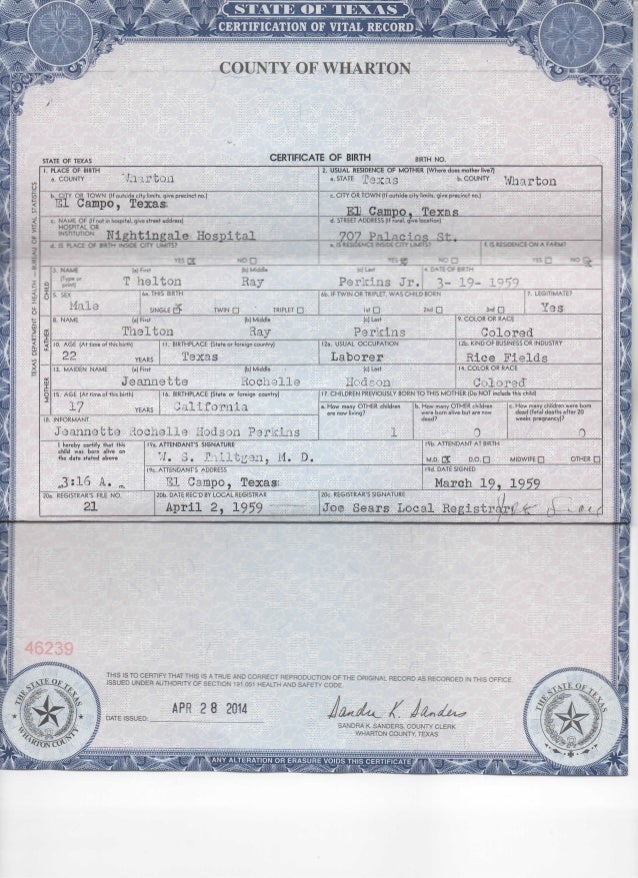 STATE OF TEXAS
CERTIFICATION OF VITAL RECORD
COUNTY OF WHARTON
STATE OF TEXAS CERTIFICATE OF BIRTH BIRTH NO.
TEXAS DEPARTMENT OF HEALTH — BUREAU OF VITAL STATISTICS
1. PLACE OF BIRTH 2. USUAL RESIDENCE OF MOTHER (Where does mother live?)
a. COUNTY Wharton a. STATE Texas b. COUNTY Wharton
b. CITY OR TOWN (If outside city limits, give precinct no.) c. CITY OR TOWN (If outside city limits, give precinct no.)
El Campo, Texas El Campo, Texas
c. NAME OF (If not in hospital, give street address) d. STREET ADDRESS (If rural, give location)
HOSPITAL OR
INSTITUTION Nightingale Hospital 707 Palacios St.
d. IS PLACE OF BIRTH INSIDE CITY LIMITS? e. IS RESIDENCE INSIDE CITY LIMITS? f. IS RESIDENCE ON A FARM?
YES NO YES NO YES NO
CHILD
3. NAME (a) First (b) Middle (c) Last 4. DATE OF BIRTH
(Type or print) Thelton Ray Perkins Jr. 3- 19- 1959
5. SEX 6a. THIS BIRTH 6b. IF TWIN OR TRIPLET, WAS CHILD BORN 7. LEGITIMATE?
Male SINGLE TWIN TRIPLET 1st 2nd 3rd Yes
FATHER
8. NAME (a) First (b) Middle (c) Last 9. COLOR OR RACE
Thelton Ray Perkins Colored
10. AGE (At time of this birth) 11. BIRTHPLACE (State or foreign country) 12a. USUAL OCCUPATION 12b. KIND OF BUSINESS OR INDUSTRY
22 YEARS Texas Laborer Rice Fields
MOTHER
13. MAIDEN NAME (a) First (b) Middle (c) Last 14. COLOR OR RACE
Jeannette Rochelle Hodson Colored
15. AGE (At time of this birth) 16. BIRTHPLACE (State or foreign country) 17. CHILDREN PREVIOUSLY BORN TO THIS MOTHER (Do NOT include this child)
17 YEARS California a. How many OTHER children are now living? b. How many OTHER children were born alive but are now dead? c. How many children were born dead (fetal deaths after 20 weeks pregnancy)?
18. INFORMANT
Jeannette Rochelle Hodson Perkins 1 0 0
I hereby certify that this child was born alive on the date stated above 19a. ATTENDANT'S SIGNATURE 19b. ATTENDANT AT BIRTH
W. S. M. D. M.D. D.O. MIDWIFE OTHER
19c. ATTENDANT'S ADDRESS 19d. DATE SIGNED
3:16 A. m. El Campo, Texas March 19, 1959
20a. REGISTRAR'S FILE NO. 20b. DATE REC'D BY LOCAL REGISTRAR 20c. REGISTRAR'S SIGNATURE
21 April 2, 1959 Joe Sears Local Registrar
46239
THIS IS TO CERTIFY THAT THIS IS A TRUE AND CORRECT REPRODUCTION OF THE ORIGINAL RECORD AS RECORDED IN THIS OFFICE.
ISSUED UNDER AUTHORITY OF SECTION 191.051 HEALTH AND SAFETY CODE.
DATE ISSUED: APR 28 2014 Sandra K. Sanders
SANDRA K. SANDERS, COUNTY CLERK
WHARTON COUNTY, TEXAS
THE STATE OF TEXAS
WHARTON COUNTY
THE STATE OF TEXAS
WHARTON COUNTY
ANY ALTERATION OR ERASURE VOIDS THIS CERTIFICATE